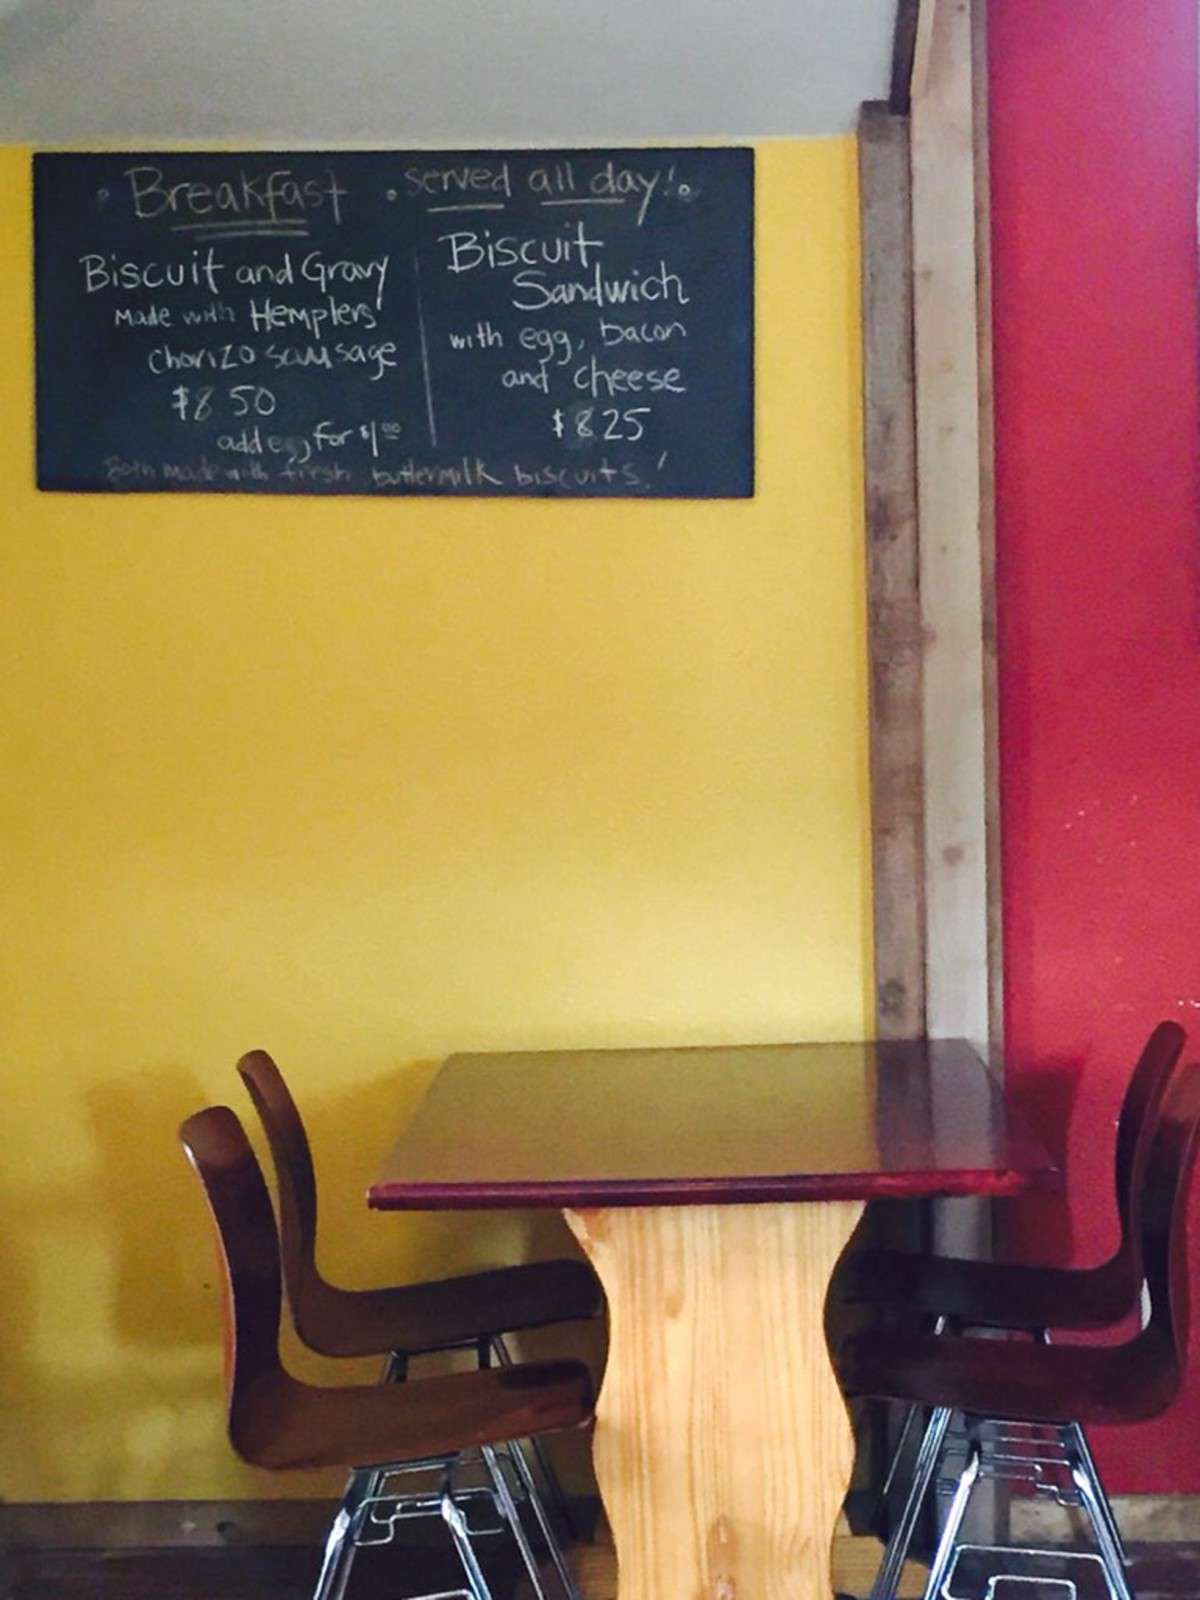 Breakfast . served all day!
Biscuit and Gravy
Made with Hemplers
Chorizo sausage
$8 50
add egg for $1.00
Biscuit
Sandwich
with egg, bacon
and cheese
$8 25
Both made with fresh buttermilk biscuits!